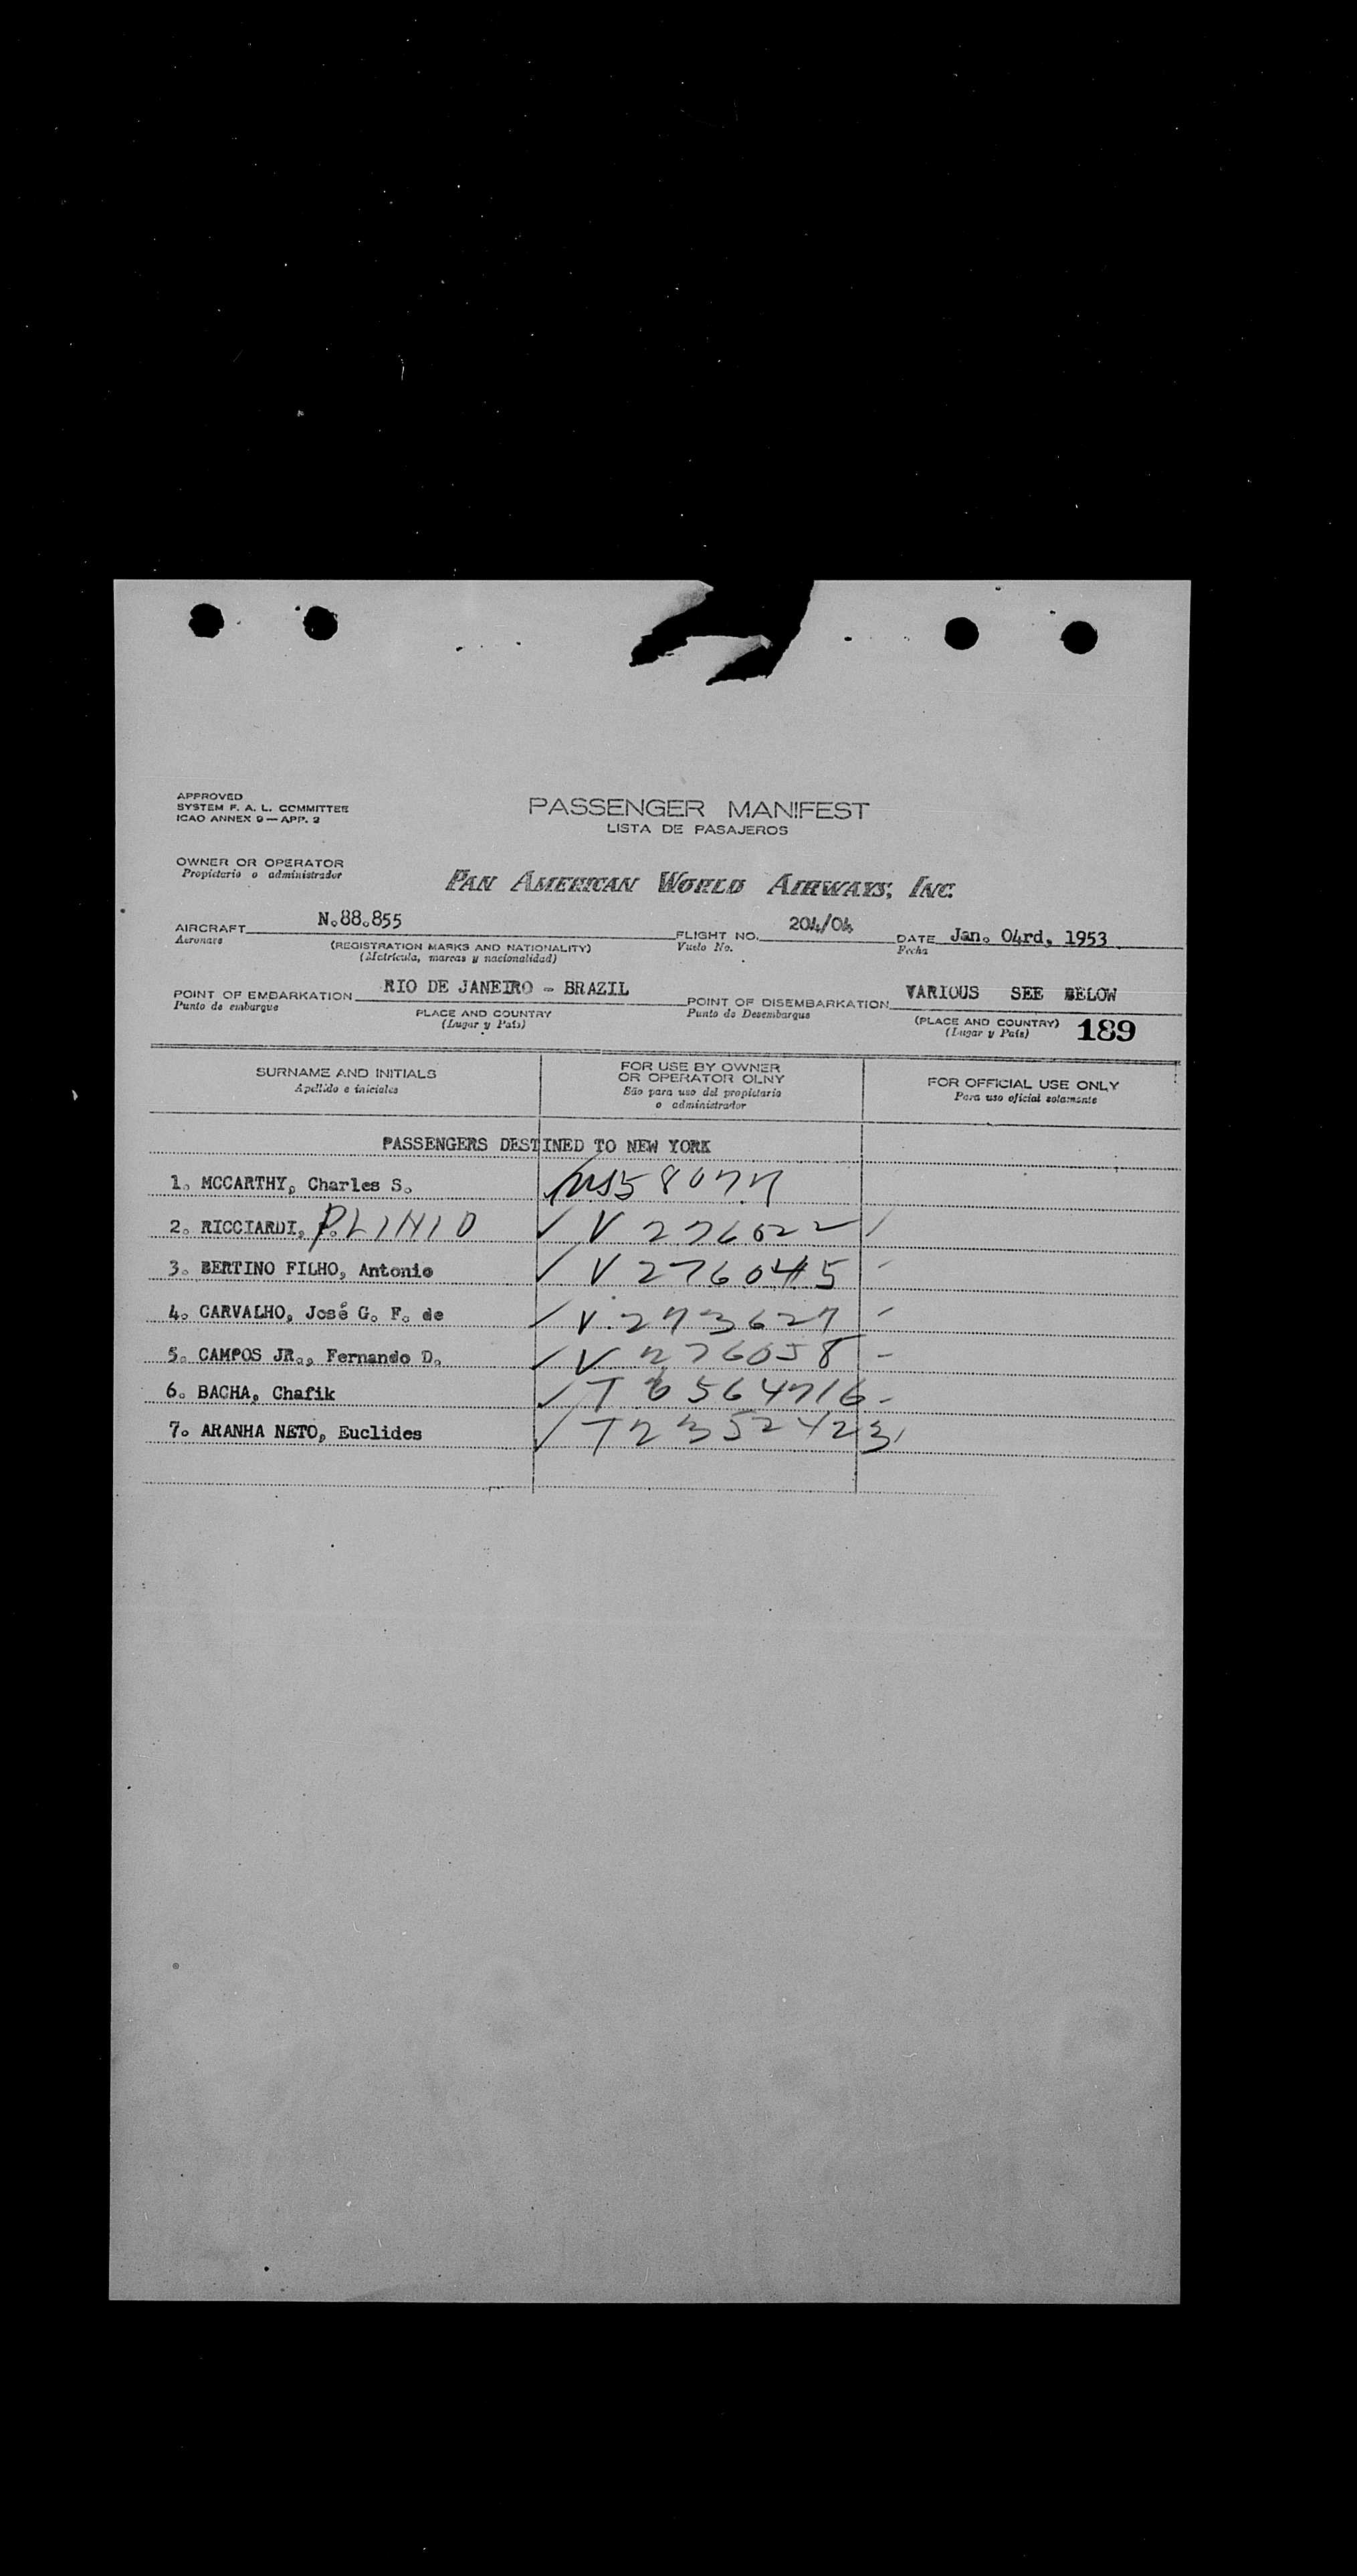 APPROVED
SYSTEM F. A. L. COMMITTEE
ICAO ANNEX 9 — APP. 2
PASSENGER MANIFEST
LISTA DE PASAJEROS
OWNER OR OPERATOR
Propietario o administrador
PAN AMERICAN WORLD AIRWAYS, INC.
AIRCRAFT N.88.855 FLIGHT NO. 204/04 DATE Jan. 04rd, 1953
Aeronave (REGISTRATION MARKS AND NATIONALITY) Vuelo No. Fecha
(Matrícula, marcas y nacionalidad)
POINT OF EMBARKATION RIO DE JANEIRO - BRAZIL POINT OF DISEMBARKATION VARIOUS SEE BELOW
Punto de embarque PLACE AND COUNTRY Punto de Desembarque (PLACE AND COUNTRY) 189
(Lugar y País) (Lugar y País)
SURNAME AND INITIALS FOR USE BY OWNER OR OPERATOR OLNY FOR OFFICIAL USE ONLY
Apellido e iniciales São para uso del propietario o administrador Para uso oficial solamente
PASSENGERS DESTINED TO NEW YORK
1. MCCARTHY, Charles S. 58077
2. RICCIARDI, PLINIO ✓ V 276022
3. BERTINO FILHO, Antonio ✓ V 276045
4. CARVALHO, José G. F. de ✓ V 273627
5. CAMPOS JR., Fernando D. ✓ V 276058
6. BACHA, Chafik ✓ T 6564716
7. ARANHA NETO, Euclides ✓ T2352423